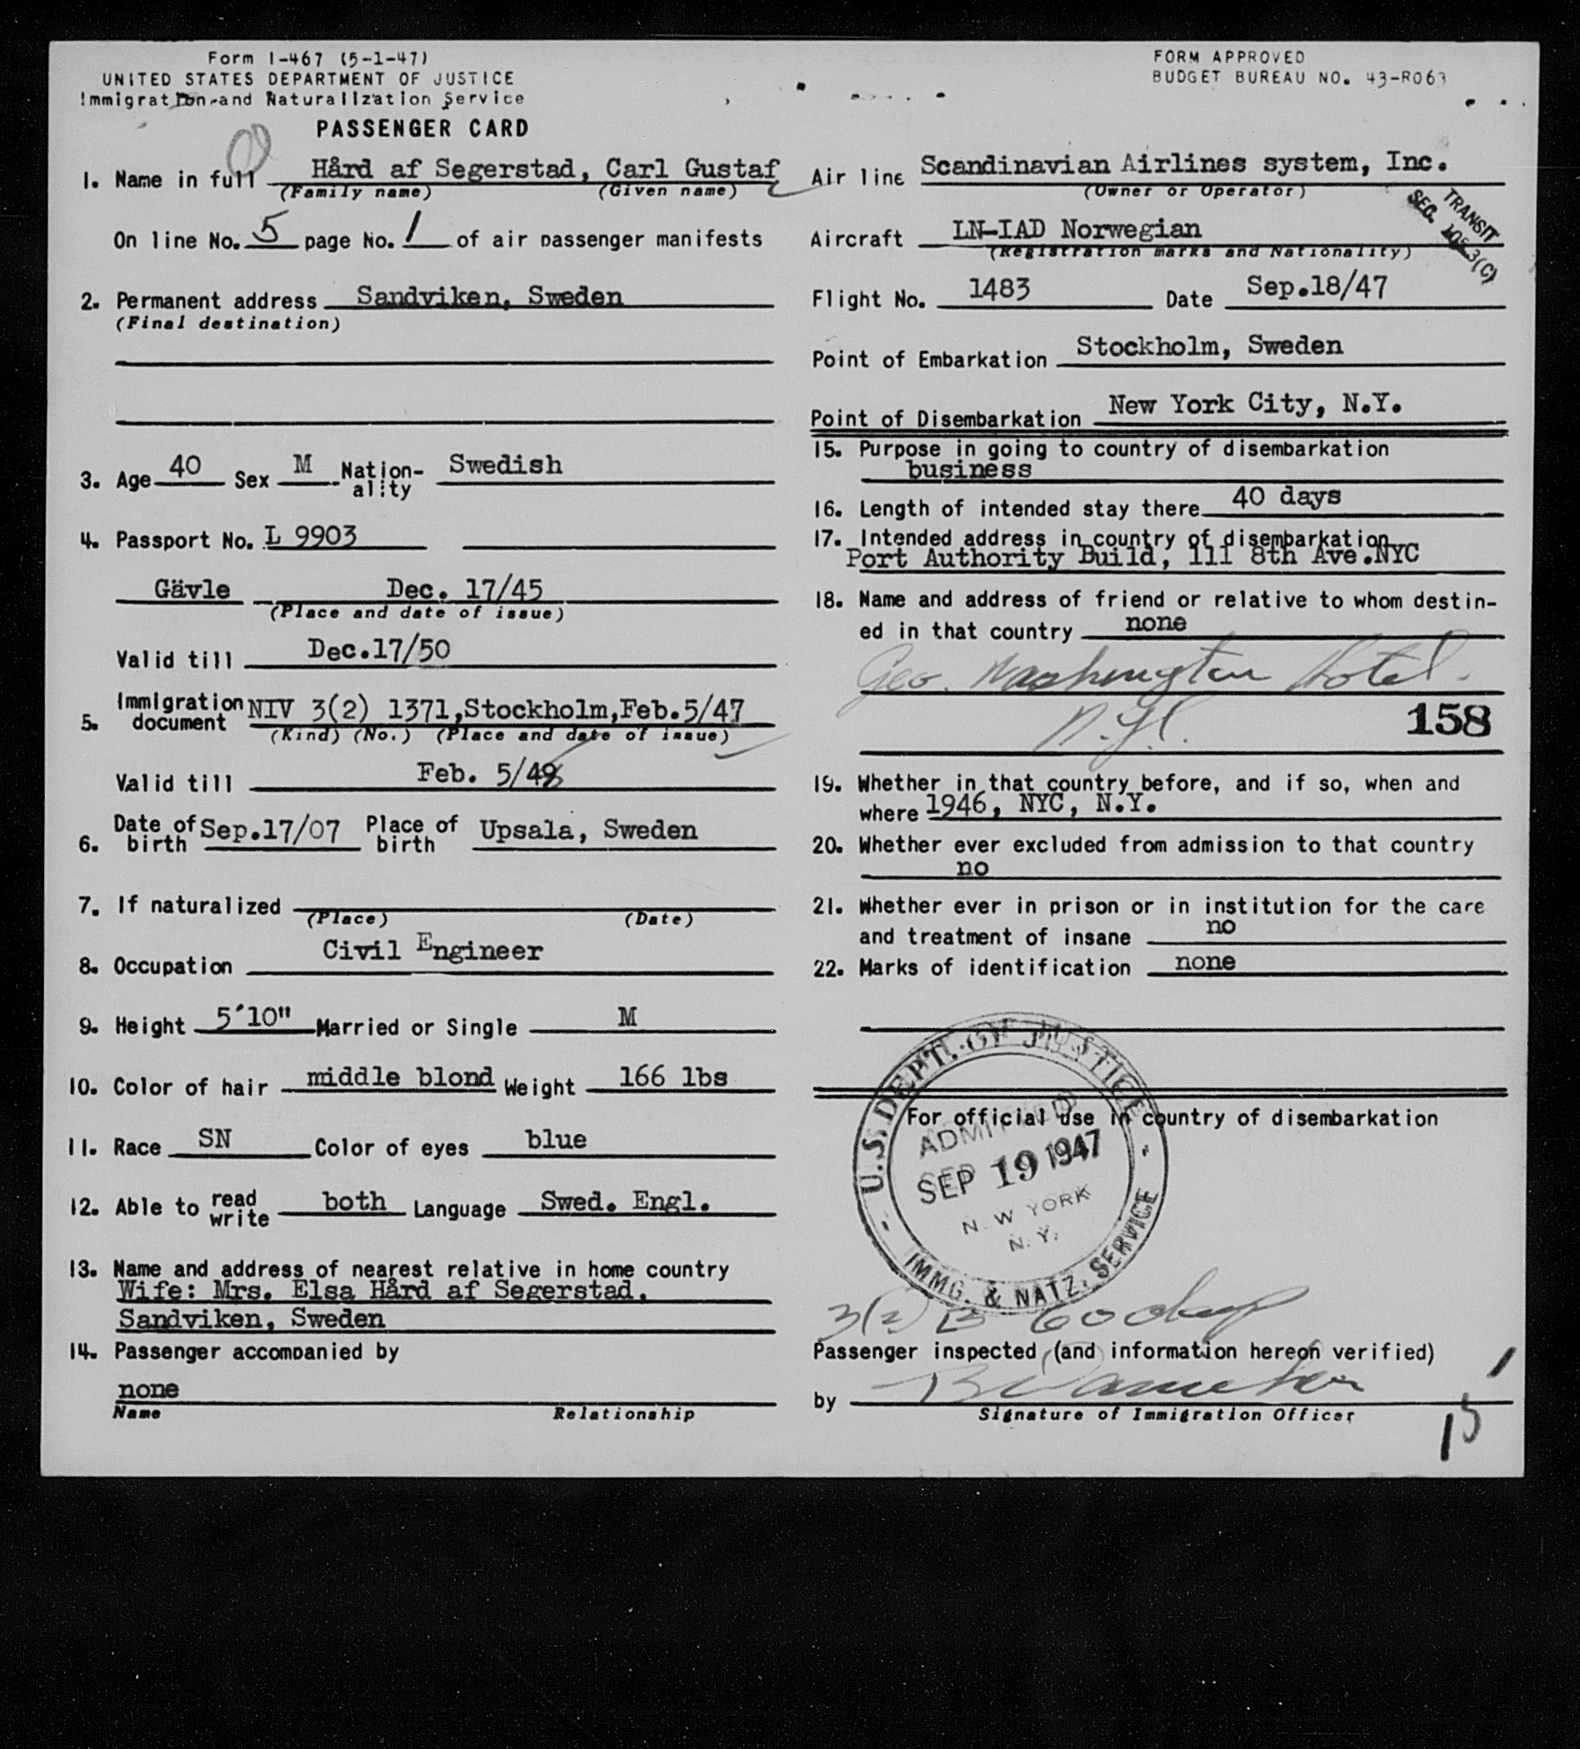 Form I-467 (5-1-47)
UNITED STATES DEPARTMENT OF JUSTICE
Immigration and Naturalization Service
PASSENGER CARD
FORM APPROVED
BUDGET BUREAU NO. 43-R063
1. Name in full Hård af Segerstad, Carl Gustaf
(Family name) (Given name)
On line No. 5 page No. 1 of air passenger manifests
2. Permanent address Sandviken, Sweden
(Final destination)
3. Age 40 Sex M Nation-ality Swedish
4. Passport No. L 9903
Gävle Dec. 17/45
(Place and date of issue)
Valid till Dec.17/50
5. Immigration document NIV 3(2) 1371,Stockholm,Feb.5/47
(Kind) (No.) (Place and date of issue)
Valid till Feb. 5/48
6. Date of birth Sep.17/07 Place of birth Upsala, Sweden
7. If naturalized
(Place) (Date)
8. Occupation Civil Engineer
9. Height 5'10" Married or Single M
10. Color of hair middle blond Weight 166 lbs
11. Race SN Color of eyes blue
12. Able to read write both Language Swed. Engl.
13. Name and address of nearest relative in home country
Wife: Mrs. Elsa Hård af Segerstad,
Sandviken, Sweden
14. Passenger accompanied by
none
Name Relationship
Air line Scandinavian Airlines system, Inc.
(Owner or Operator)
TRANSIT
SEC. 3(C)
Aircraft LN-IAD Norwegian
(Registration marks and Nationality)
Flight No. 1483 Date Sep.18/47
Point of Embarkation Stockholm, Sweden
Point of Disembarkation New York City, N.Y.
15. Purpose in going to country of disembarkation
business
16. Length of intended stay there 40 days
17. Intended address in country of disembarkation
Port Authority Build, 111 8th Ave.NYC
18. Name and address of friend or relative to whom destin-
ed in that country none
Geo. Washington Hotel.
N.Y.C.
158
19. Whether in that country before, and if so, when and
where 1946, NYC, N.Y.
20. Whether ever excluded from admission to that country
no
21. Whether ever in prison or in institution for the care
and treatment of insane no
22. Marks of identification none
For official use in country of disembarkation
U.S. DEPT. OF JUSTICE
ADMITTED
SEP 19 1947
NEW YORK
N.Y.
IMMG. & NATZ. SERVICE
3(2) B 60 days
Passenger inspected (and information hereon verified)
by
Signature of Immigration Officer
15